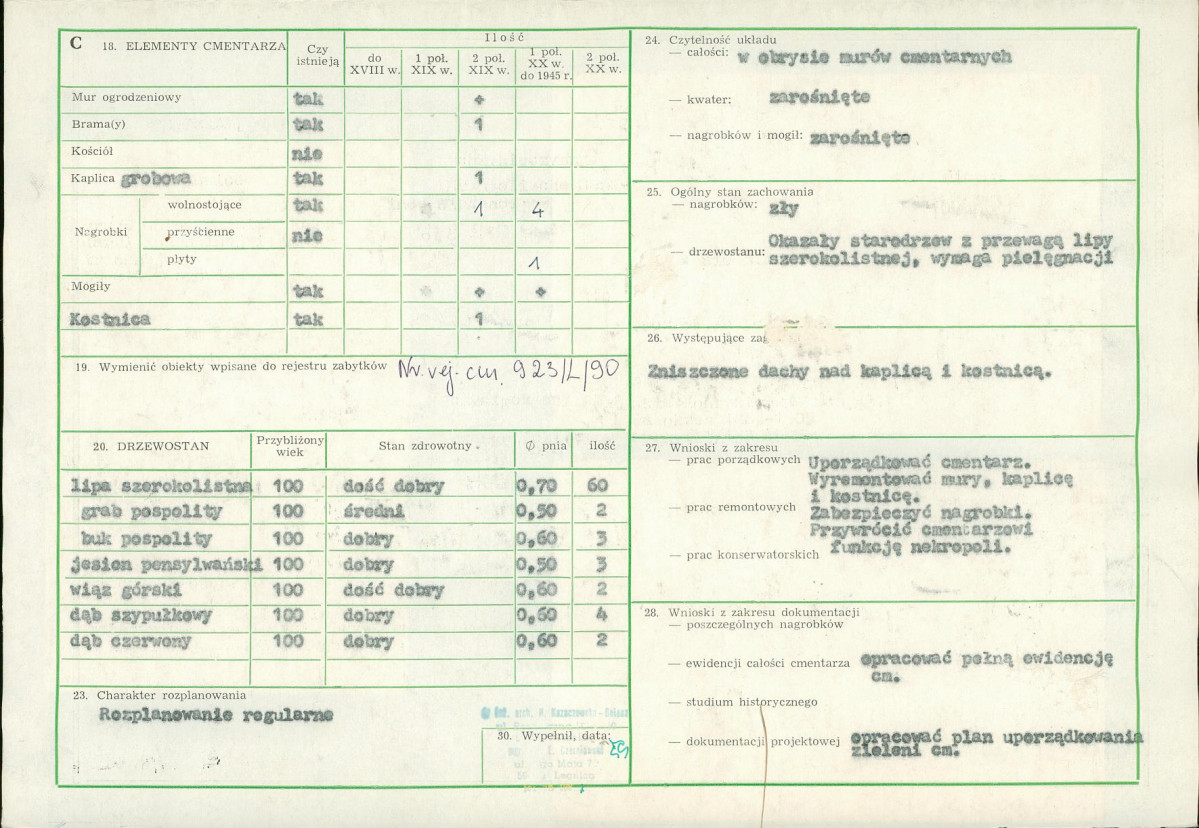 C 18. ELEMENTY CMENTARZA
Czy istnieją
Ilość
do XVIII w.
1 poł. XIX w.
2 poł. XIX w.
1 poł. XX w. do 1945 r.
2 poł. XX w.
Mur ogrodzeniowy tak +
Brama(y) tak 1
Kościół nie
Kaplica grobowa tak 1
Nagrobki
wolnostojące tak 1 4
przyścienne nie
płyty 1
Mogiły tak + + +
Kostnica tak 1
19. Wymienić obiekty wpisane do rejestru zabytków Nr. rej. cm. 923/L/90
20. DRZEWOSTAN
Przybliżony wiek
Stan zdrowotny
Ø pnia
ilość
lipa szerokolistna 100 dość dobry 0,70 60
grab pospolity 100 średni 0,50 2
buk pospolity 100 dobry 0,60 3
jesion pensylwański 100 dobry 0,50 3
wiąz górski 100 dość dobry 0,60 2
dąb szypułkowy 100 dobry 0,60 4
dąb czerwony 100 dobry 0,60 2
23. Charakter rozplanowania
Rozplanowanie regularne
30. Wypełnił, data:
24. Czytelność układu
— całości: w obrysie murów cmentarnych
— kwater: zarośnięte
— nagrobków i mogił: zarośnięte
25. Ogólny stan zachowania
— nagrobków: zły
— drzewostanu: Okazały starodrzew z przewagą lipy
szerokolistnej, wymaga pielęgnacji
26. Występujące
Zniszczone dachy nad kaplicą i kostnicą.
27. Wnioski z zakresu
— prac porządkowych Uporządkować cmentarz.
Wyremontować mury, kaplicę
i kostnicę.
— prac remontowych Zabezpieczyć nagrobki.
Przywrócić cmentarzowi
— prac konserwatorskich funkcję nekropoli.
28. Wnioski z zakresu dokumentacji
— poszczególnych nagrobków
— ewidencji całości cmentarza opracować pełną ewidencję
cm.
— studium historycznego
— dokumentacji projektowej opracować plan uporządkowania
zieleni cm.